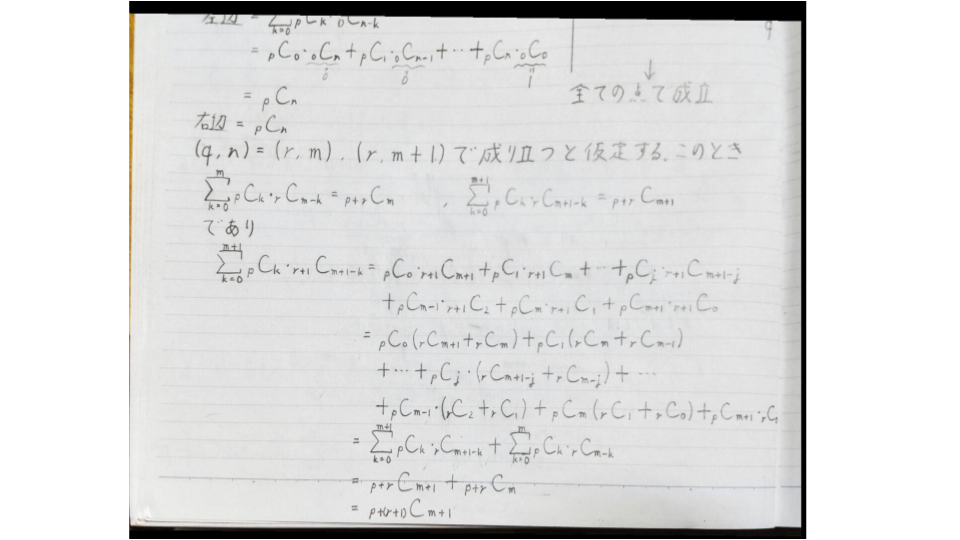 左辺 = Σ[k=0] pCk・0Cn-k
= pC0・0Cn + pC1・0Cn-1 + … + pCn・0C0
0 0 1
q
全ての点で成立
= pCn
右辺 = pCn
(q, n) = (r, m), (r, m+1) で成り立つと仮定する。このとき
Σ[k=0→m] pCk・rCm-k = p+rCm , Σ[k=0→m+1] pCk・rCm+1-k = p+rCm+1
であり
Σ[k=0→m+1] pCk・r+1Cm+1-k = pC0・r+1Cm+1 + pC1・r+1Cm + … + pCj・r+1Cm+1-j
+ pCm-1・r+1C2 + pCm・r+1C1 + pCm+1・r+1C0
= pC0(rCm+1 + rCm) + pC1(rCm + rCm-1)
+ … + pCj・(rCm+1-j + rCm-j) + …
+ pCm-1・(rC2 + rC1) + pCm(rC1 + rC0) + pCm+1・rC
= Σ[k=0→m+1] pCk・rCm+1-k + Σ[k=0→m] pCk・rCm-k
= p+rCm+1 + p+rCm
= p+(r+1)Cm+1